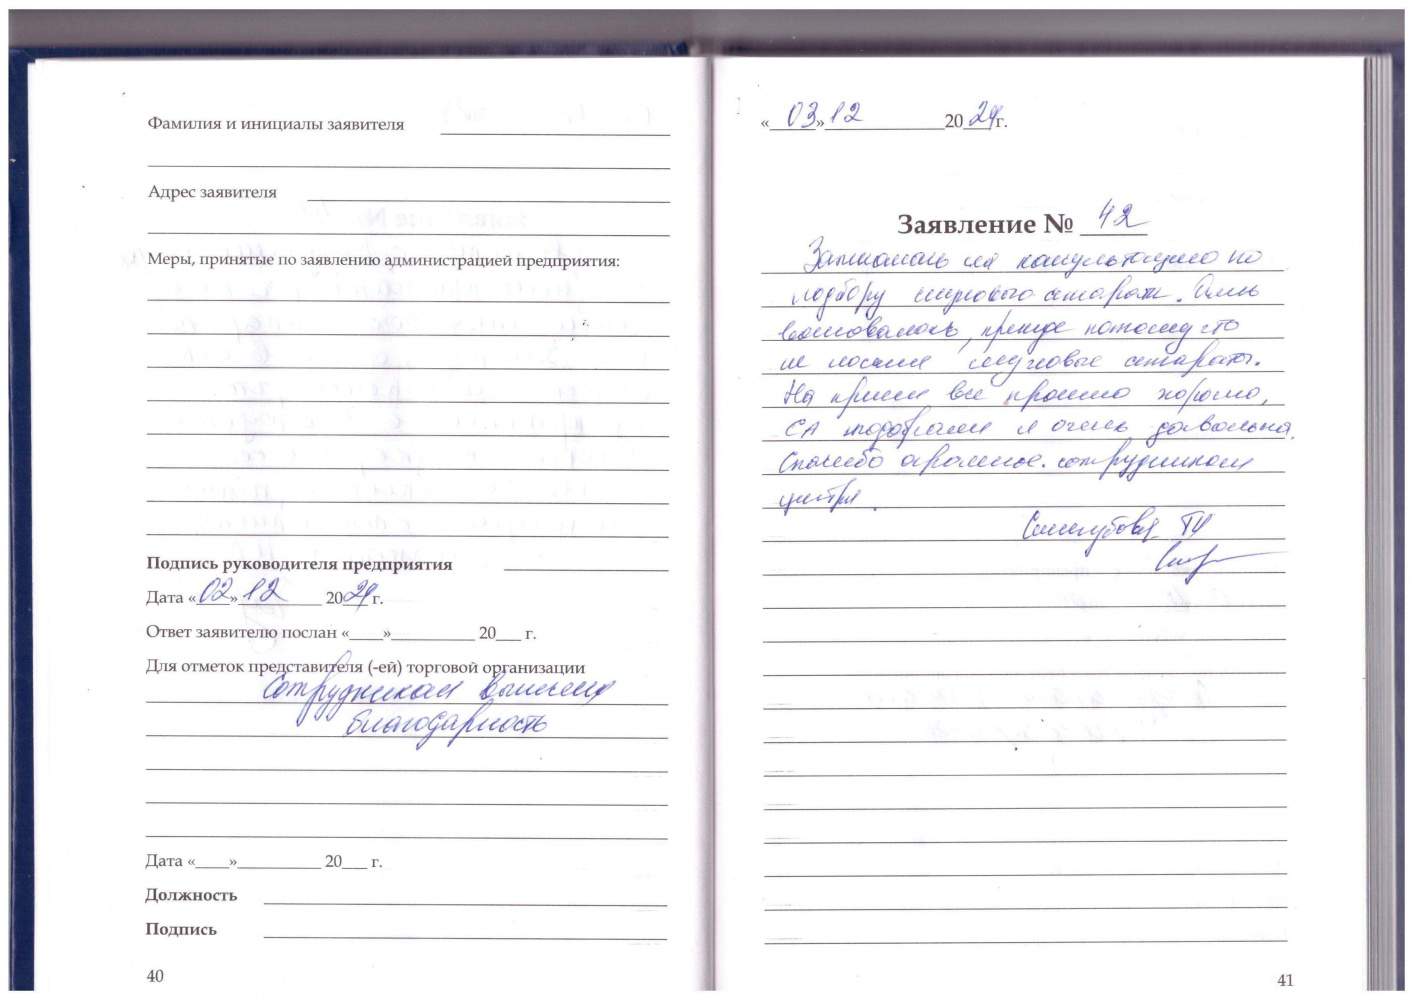 Фамилия и инициалы заявителя
Адрес заявителя
Меры, принятые по заявлению администрацией предприятия:
Подпись руководителя предприятия
Дата «02» 12 2024 г.
Ответ заявителю послан «____»__________ 20___ г.
Для отметок представителя (-ей) торговой организации
Сотрудникам
благодарность
Дата «____»__________ 20___ г.
Должность
Подпись
40
«03» 12 2024 г.
Заявление № 42
Записалась на консультацию по
подбору слухового аппарата. Очень
волновалась, прежде потому что
не носила слуховые аппараты.
На приеме все прошло хорошо,
СА подобрали я очень довольна.
Спасибо огромное сотрудникам
центра.
41